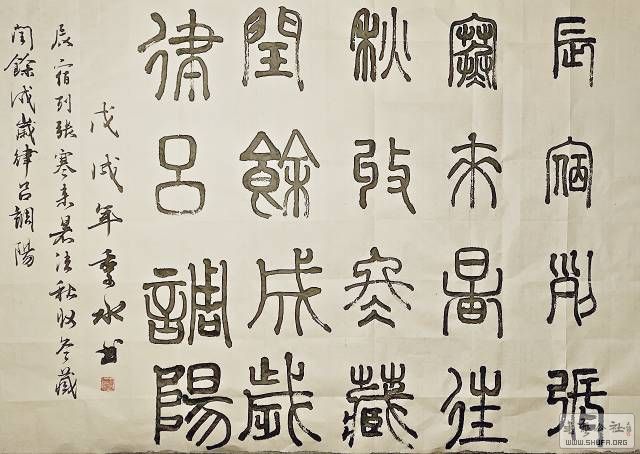 辰宿列張
寒來暑往
秋收冬藏
閏餘成歲
律呂調陽
戊戌年季冰書
辰宿列張寒來暑往秋收冬藏
閏餘成歲律呂調陽
WWW.SHUFA.ORG